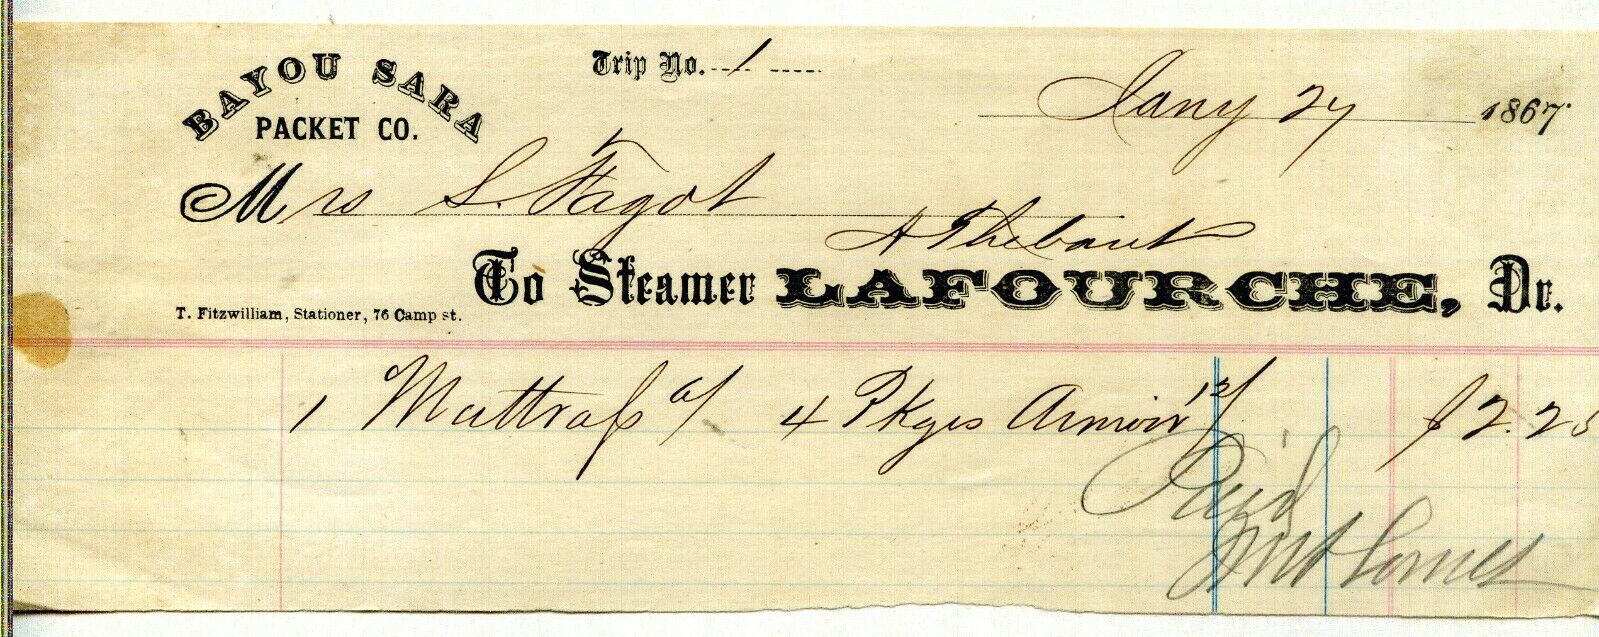 BAYOU SARA
PACKET CO.
Trip No. 1
Jany 27 1867
Mrs S. Fagot
A Thibaut
To Steamer LAFOURCHE, Dr.
T. Fitzwilliam, Stationer, 76 Camp st.
1 Mattrass 6/ 4 Pkges Armoir 12/ $2.25
Paid